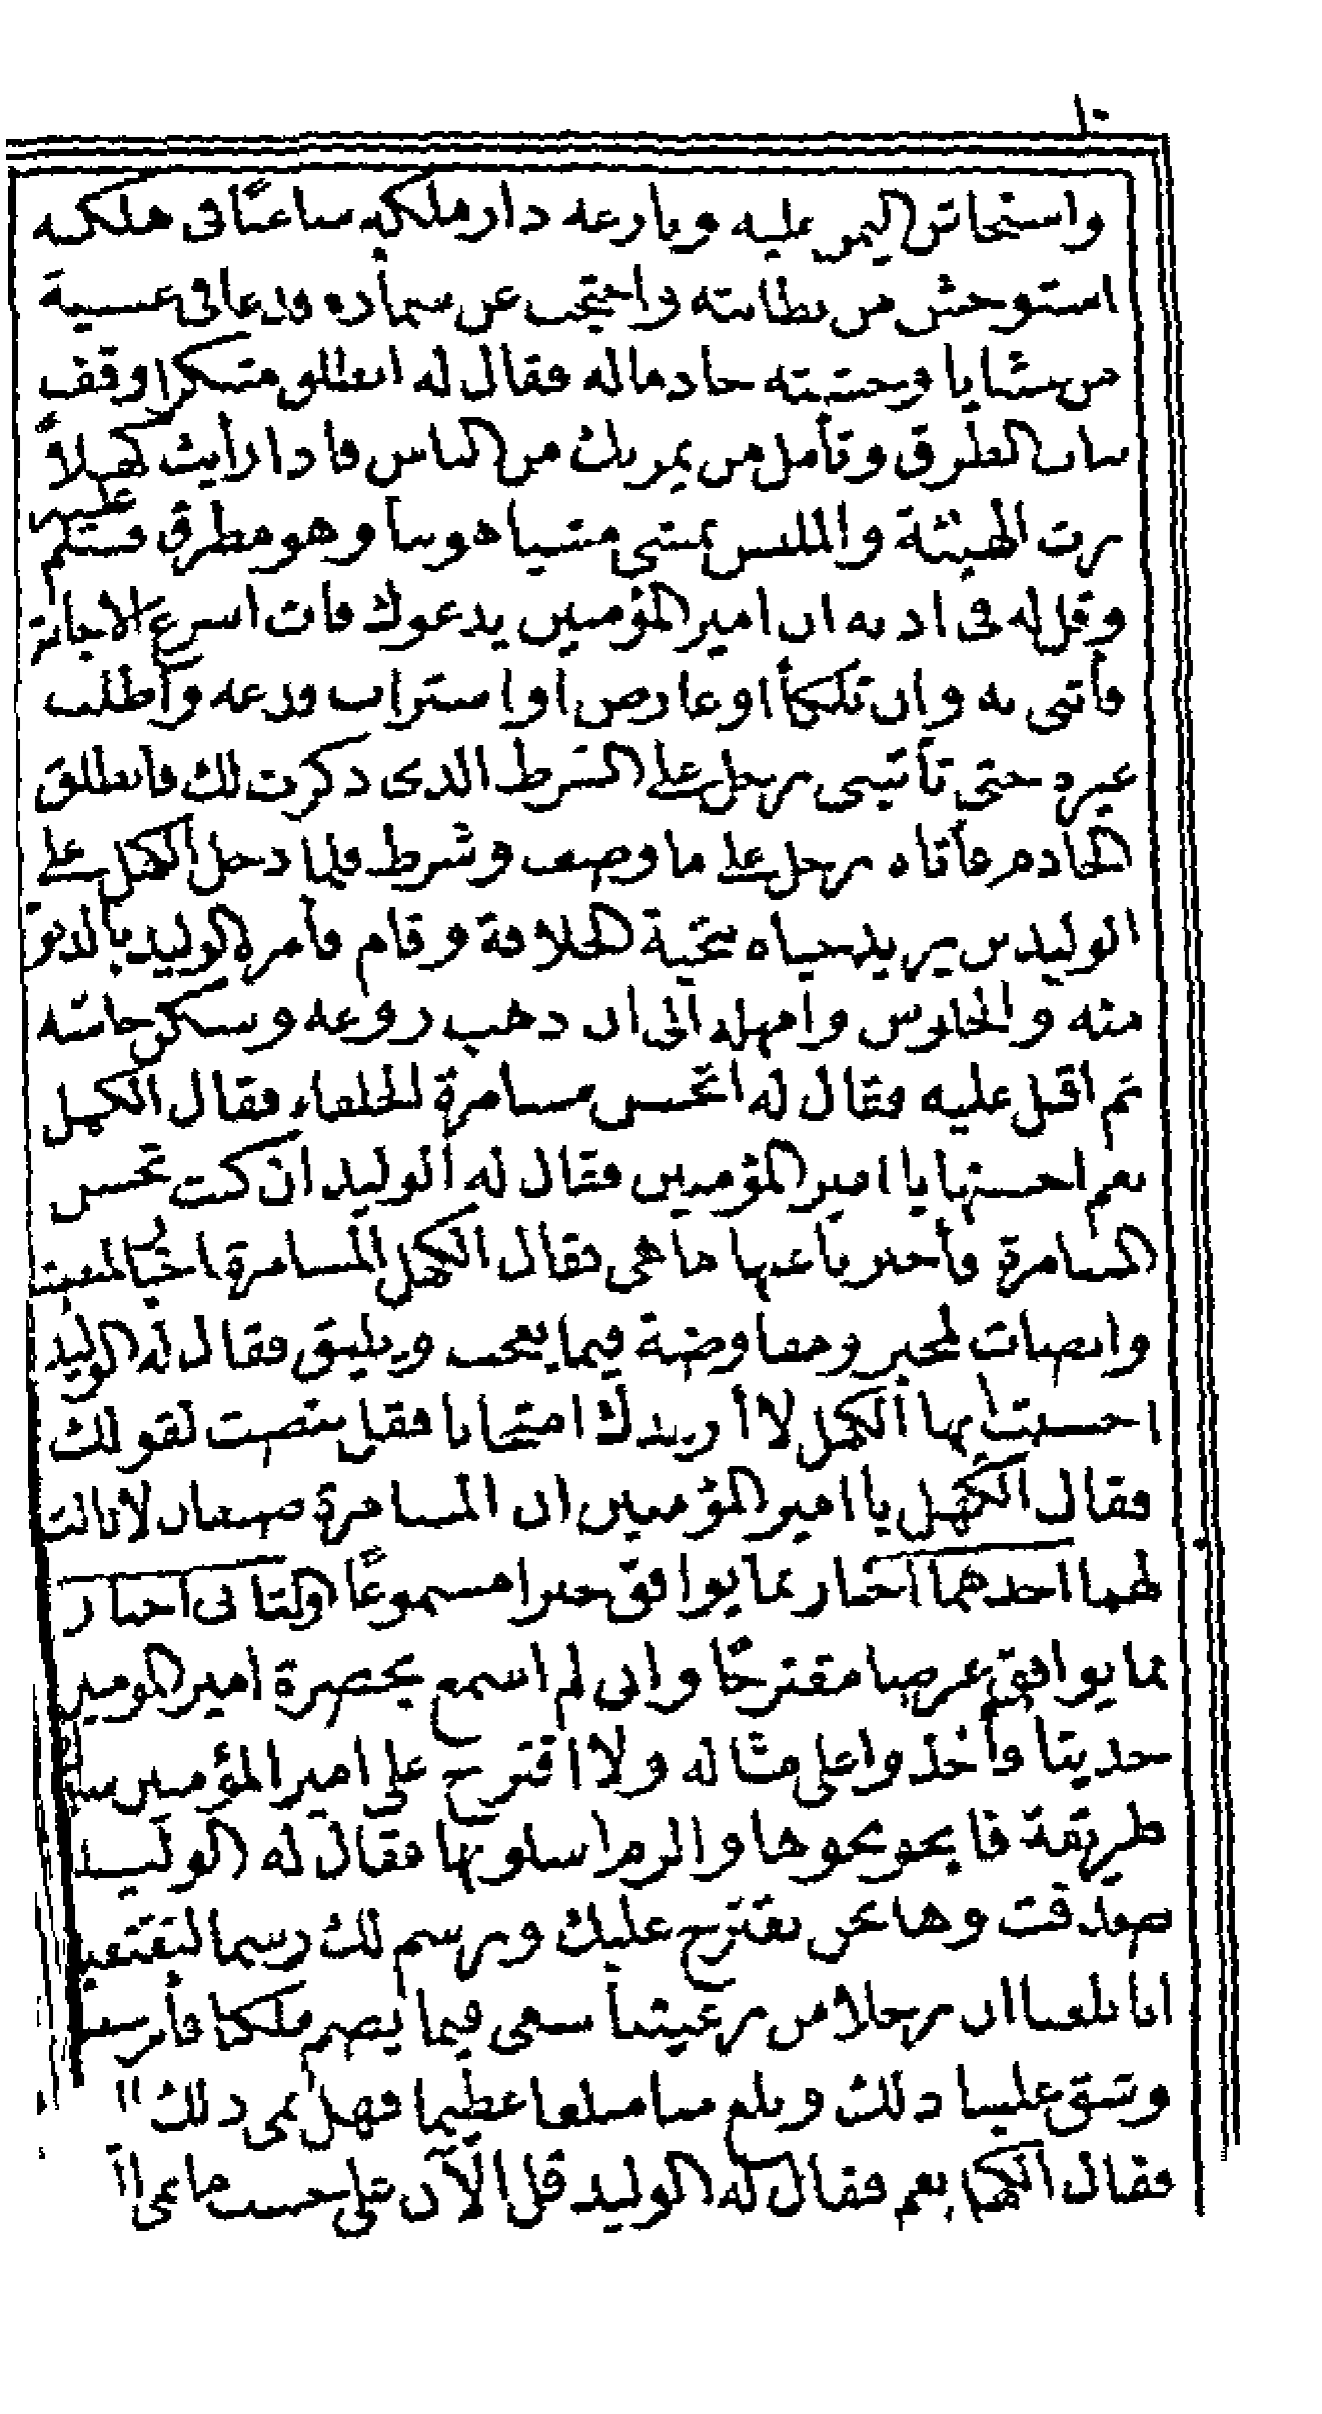 ١٠
واستجاش اليمن عليه ونازعه دار ملكه ساعيًا في هلكه
استوحش من بطانته واحتجب عن سماره فدعا في عشية
من عشايا وحشته خادما له فقال له انطلق متنكرا وقف
ببات الطرق وتأمل من يمر بك من الناس فاذا رأيت كهلاً
رث الهيئة والملبس يمشي مشيا هونا وهو مطرق فسلم عليه
وقل له في اذنه ان امير المؤمنين يدعوك فان اسرع الاجابة
فأتني به وان تلكأ او عارض او استراب فدعه واطلب
غيره حتى تأتيني برجل على الشرط الذى ذكرت لك فانطلق
الخادم فأتاه برجل على ما وصف وشرط فلما دخل الكهل على
الوليد بن يزيد حياه بتحية الخلافة وقام فأمره الوليد بالدنو
منه والجلوس وأمهله الى ان ذهب روعه وسكن جاشه
ثم اقبل عليه فقال له اتحسن مسامرة الخلفاء فقال الكهل
نعم احسنها يا امير المؤمنين فقال له الوليد ان كنت تحسن
المسامرة فأخبرنا عنها ما هي فقال الكهل المسامرة اخبار لمنصت
وانصات لمخبر ومفاوضة فيما يعجب ويليق فقال له الوليد
احسنت ايها الكهل لا أريدك امتحانا فقل ننصت لقولك
فقال الكهل يا امير المؤمنين ان المسامرة صنفان لا ثالث
لهما احدهما اخبار بما يوافق خبرا مسموعًا والثاني اخبار
بما يوافق غرضا مقترحًا واني لم اسمع بحضرة امير المومنين
حديثا فأخذوا على مثاله ولا اقترح على امير المؤمنين سلوك
طريقة فانحو نحوها والزم اسلوبها فقال له الوليد
صدقت وها نحن نقترح عليك ونرسم لك رسما لتقتفيه
انا بلغنا ان رجلا من رعيتنا سعى فيما يضر ملكنا فأثر سعيه
وشق علينا ذلك وبلغ منا مبلغا عظيما فهل نمى ذلك اليك
فقال الكهل نعم فقال له الوليد قل الآن على حسب ما نمى